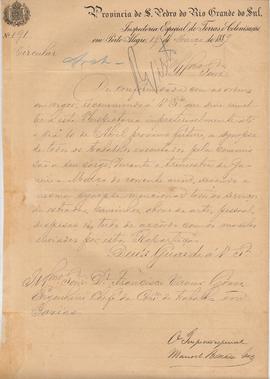 Provincia de S. Pedro do Rio Grande do Sul,
Inspectoria Especial de Terras e Colonisação
em Porto Alegre, de Março de 1889
Nº 191
Circular
Illmo Snr.
De conformidade com as ordens
em vigor, recommendo a V. Sª que
a esta Inspectoria impreterivelmente até
o dia 10 de Abril proximo futuro, a synopse
de todos os trabalhos executados pela Commis-
são a seu cargo, durante o trimestre de Ja-
neiro a Março do corrente anno, devendo a
mesma synopse
de estradas, caminhos, obras de arte, pessoal,
despesas etc. tudo de accordo com os modelos
enviados por esta Repartição.
Deus Guarde a V. Sª
Illmo Snr. Dr. Francisco
Engenheiro Chefe da Com. de
Caxias
O Inspector especial
Manoel